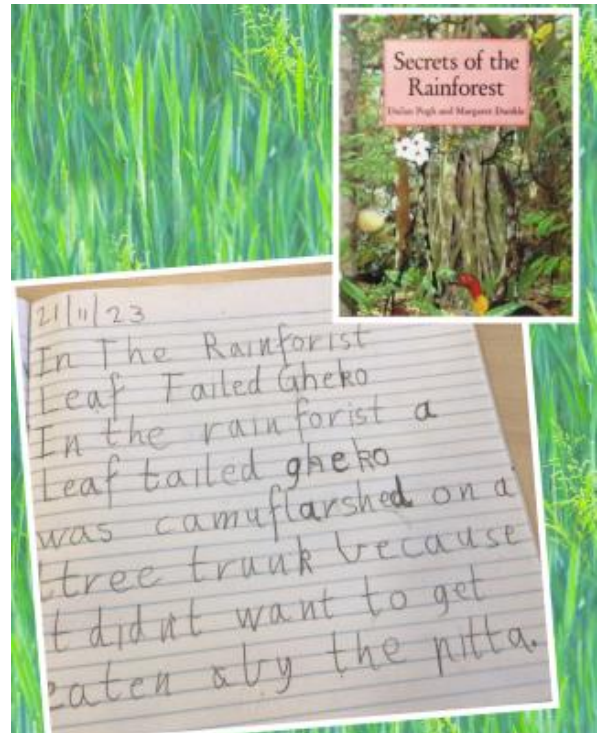 Secrets of the
Rainforest
Dailan Pugh and Margaret Dunkle
21/11/23
In The Rainforist
Leaf Tailed Gheko
In the rainforist a
Leaf tailed gheko
was camuflarshed on a
tree trunk because
t didnt want to get
eaten by the pitta.